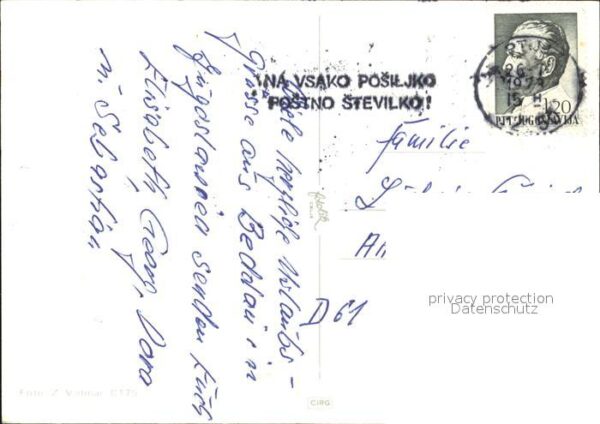 Viele herzliche Urlaubs-
Grüsse aus Beddau in
Jugoslawien senden Euch
Elisabeth, Georg, Dora
u. Sebastian
NA VSAKO POŠILJKO
POŠTNO ŠTEVILKO!
1.20
PTT JUGOSLAVIJA
Familie
D 61
privacy protection
Datenschutz
Foto: Z. Vidmar C175
CIRG